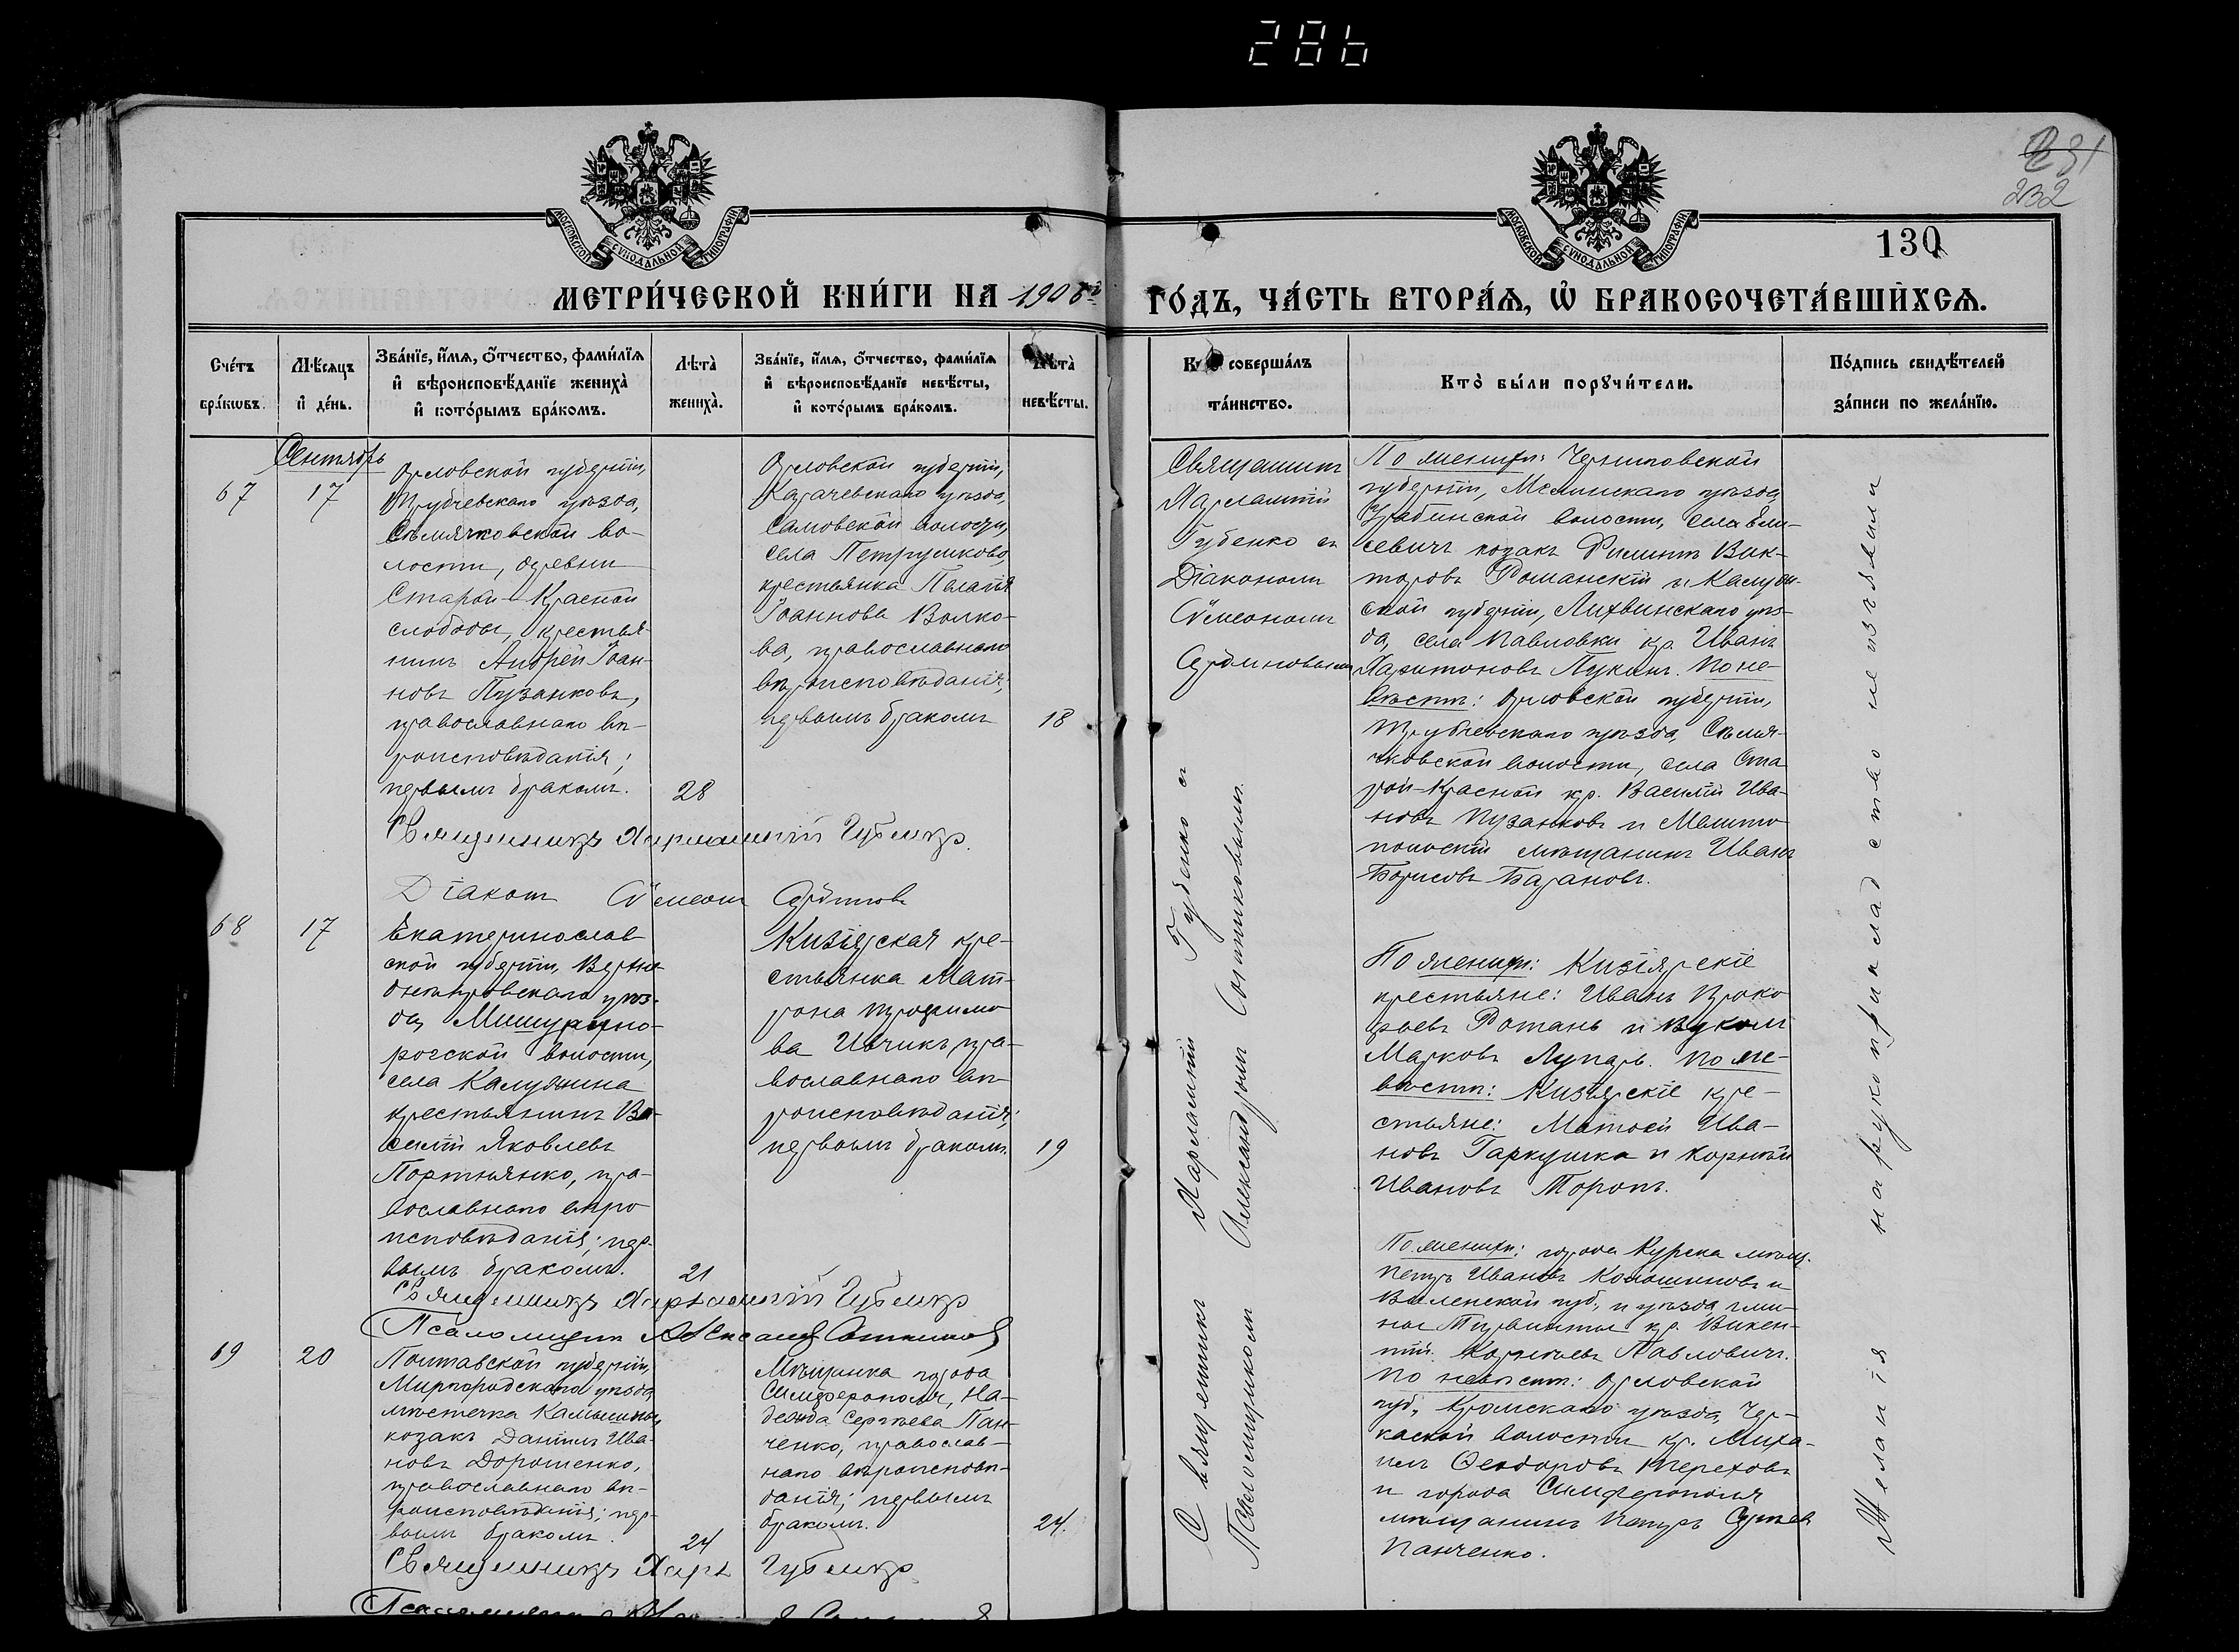 286
231
232
130
МОСКОВСКОЙ СѴНОДАЛЬНОЙ ТИПОГРАФІИ
МОСКОВСКОЙ СѴНОДАЛЬНОЙ ТИПОГРАФІИ
МЕТРИ́ЧЕСКОЙ КНИ́ГИ НА 1908й ГО́ДЪ, ЧА́СТЬ ВТОРА́Ѧ, Ѡ҆ БРАКОСОЧЕТА́ВШИХСѦ.
Сче́тъ бра́кѡвъ.
Мѣ́сяцъ и҆ де́нь.
Зва́нїе, и҆́мѧ, ѻ҆́тчество, фами́лїѧ
и҆ вѣроисповѣ́данїе жениха̀
и҆ кото́рымъ бра́комъ.
Лѣта̀ жениха̀.
Зва́нїе, и҆́мѧ, ѻ҆́тчество, фами́лїѧ
и҆ вѣроисповѣ́данїе невѣ́сты,
и҆ кото́рымъ бра́комъ.
Лѣта̀ невѣ́сты.
Кто̀ соверша́лъ та́инство.
Кто̀ бы́ли порꙋчи́тели.
По́дпись свидѣ́телей
за́писи по жела́нїю.
Сентябрь
67
17
Орловской губерніи,
Трубчевскаго уѣзда,
Сѣмячковской во-
лости, деревни
Старой-Красной
слободы, крестья-
нинъ Андрей Іоан-
новъ Пузанковъ,
православнаго вѣ-
роисповѣданія;
первымъ бракомъ.
28
Орловской губерніи,
Карачевскаго уѣзда,
Самовской волости,
села Петрушково,
крестьянка Пелагія
Іоаннова Волко-
ва, православнаго
вѣроисповѣданія;
первымъ бракомъ
18
Священникъ
Харлампій
Губенко съ
Діакономъ
Сѵмеономъ
По женихѣ: Черниговской
губерніи, Мглинскаго уѣзда,
волости, села Ели-
севичъ козакъ Филиппъ Вик-
торовъ Романскій и Калуж-
ской губерніи, Лихвинскаго уѣз-
да, села Павловки кр. Иванъ
Харитоновъ Лукинъ. По не-
вѣстѣ: Орловской губерніи,
Трубчевскаго уѣзда, Сѣмя-
чковской волости, села Ста-
рой-Красной кр. Василій Ива-
новъ Пузанковъ и Мелито-
польскій мѣщанинъ Иванъ
Борисовъ Барановъ.
Священникъ Харлампій Губенко.
Діаконъ Сѵмеонъ
68
17
Екатеринослав
ской губерніи, Верхне-
днѣпровскаго уѣз-
да, Мишурино-
рогской волости,
села Калужина
крестьянинъ Ва-
силій Яковлевъ
Портнянко, пра-
вославнаго вѣро
исповѣданія; пер-
вымъ бракомъ.
21
Кизіярская кре-
стьянка Мат-
рона Трофимо
ва Ивчикъ, пра-
вославнаго вѣ-
роисповѣданія;
первымъ бракомъ
19
По женихѣ: Кизіярскіе
крестьяне: Иванъ Проко
фьевъ Ротань и Вуколъ
Марковъ Лупарь. По не-
вѣстѣ: Кизіярскіе кре-
стьяне: Матѳей Ива-
новъ Гаркушка и Корнѣй
Ивановъ Торопъ.
Священникъ Харлампій Губенко
Псаломщикъ Александръ Сотниковъ
69
20
Полтавской губерніи,
Миргородскаго уѣзда,
мѣстечка Камышны,
козакъ Даніилъ Ива-
новъ Дорошенко,
православнаго вѣ-
роисповѣданія; пер-
вымъ бракомъ.
24
Мѣщанка города
Симферополя, На-
дежда Сергѣева Пан-
ченко, православ-
наго вѣроисповѣ-
данія; первымъ
бракомъ.
24.
Священникъ Харлампій Губенко и
Псаломщикомъ Александромъ Сотниковымъ.
По женихѣ: города Курска мѣщ.
Петръ Ивановъ Колошиновъ и
Виленской губ. и уѣзда, гми-
ны кр. Викен-
тій Корнѣевъ Павловичъ.
По невѣстѣ: Орловской
губ. Кромскаго уѣзда, Чер-
каской волости кр. Миха-
илъ Ѳеодоровъ Тереховъ
и города Симферополя
мѣщанинъ Петръ Сергѣевъ
Панченко.
Желанія на рукоприкладство не изъявили
Священникъ Харл Губенко